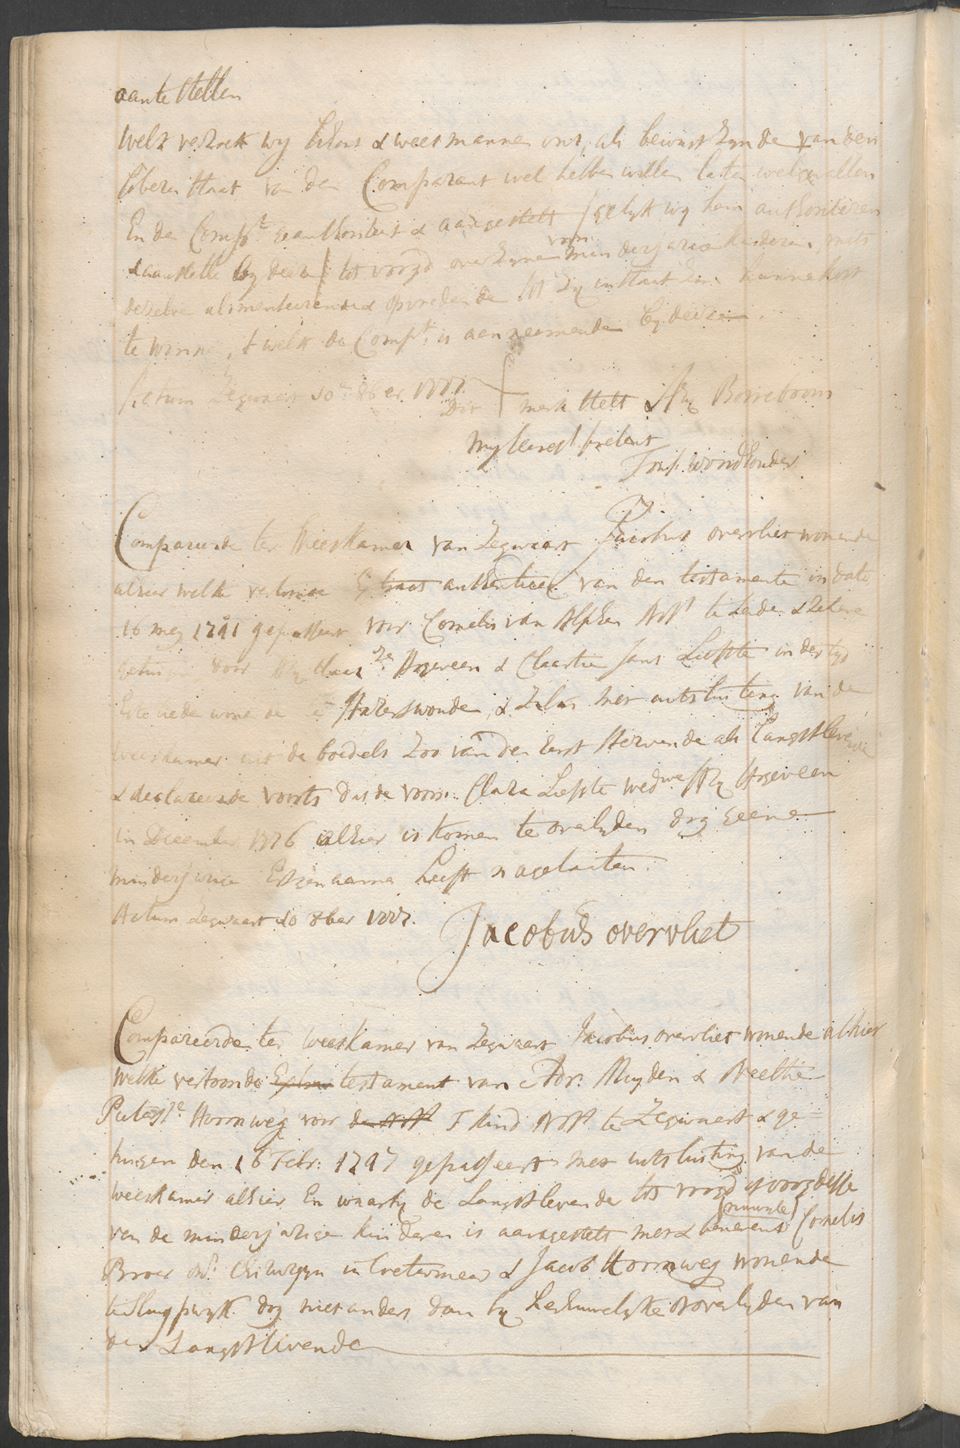 aante stellen
Welk verzoek wy Schout & weesmannen ons, als bewust zynde van den
sobere staat van den Comparant wel hebben willen laten welgevallen
En den Compt. geauthoriseert & aangestelt / gelyk wy hem authoriseren
& aanstelle by deeze / tot voogd over zyne voorn minderjarige kinderen, mits
dezelve alimenteerende & opvoedende tot zy in staat zyn hunne kost
te winne, 't welk de Compt. is aanneemende by deeze.
Actum Zegwaart 10 8ber 1777.
Dit merk stelt Ary Borreboom
my Secrets. present
Compareerde ter Weeskamer van Zegwaart Jacobus overvliet wonende
alhier welke vertoonde authenticq van den testamente in dato
16 mey 1741 gepasseert voor Cornelis van Alphen Nots. te Leide & zekere
getuigen door Ary Hogeveen & Claartie Jans Liefste in der tyd
Echteliede wonende te Hazerswoude, & zulks met uitsluiting van de
weeskamer uit de boedels zoo van den Eerst stervende als Langstlevende
& declareerde voorts dat de voorn. Clara Liefste wed. Ary Hogeveen
in December 1776 alhier is komen te overlyden dog geene
minderjarige Erfgenaame heeft nagelaten.
Actum Zegwaart 10 8ber 1777.
Jacobus overvliet
Compareerde ter weeskamer van Zegwaart Jacobus overvliet wonende alhier
welke vertoonde testament van Adr. Muyden & Neeltie
Hoornweg voor de Nots T kind Nots. te Zegwaart & ge=
tuigen den 16 Febr: 1747 gepasseert met uitsluiting van de
weeskamer alhier En waarby de Langstlevende tot voogd of voogdesse
van de minderjarige kinderen is aangestelt met & benevens Cornelis
Broer in Soetermeer & Jacob Hoornweg wonende
dog niet anders dan by herhuwelyke of overlyden van
de Langstlevende